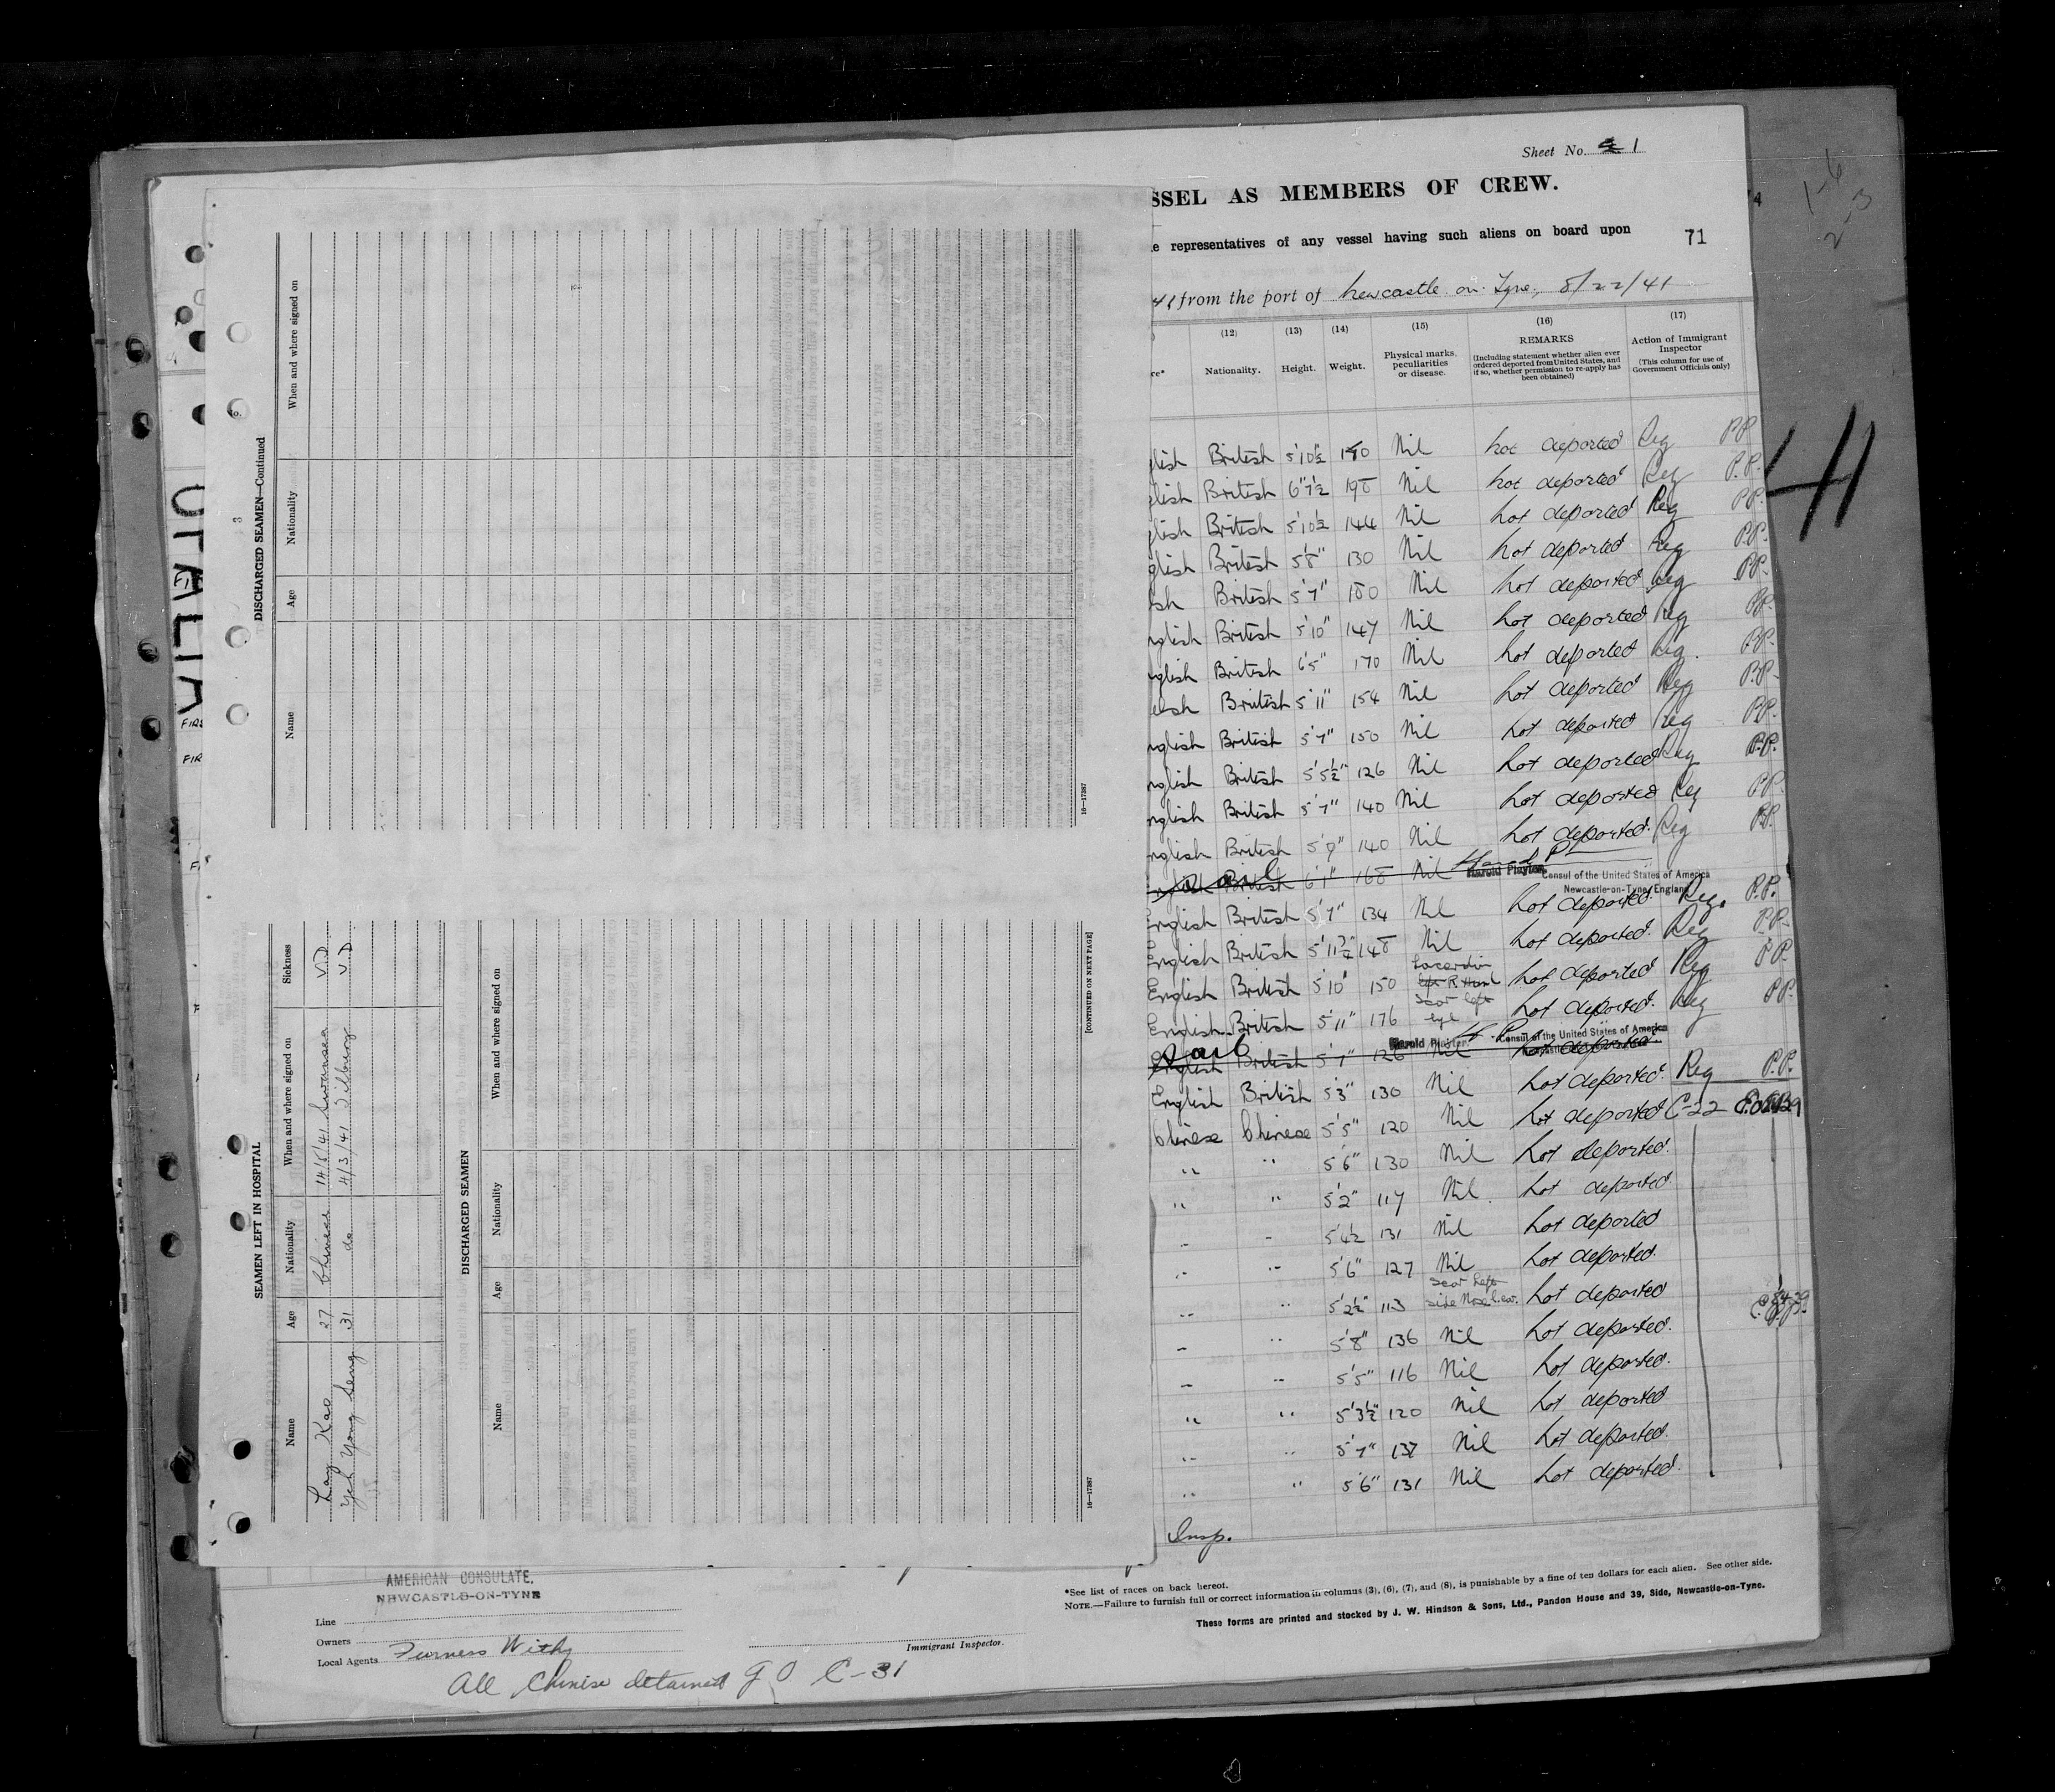 Sheet No. 1
SSEL AS MEMBERS OF CREW.
e representatives of any vessel having such aliens on board upon
71
41 from the port of Newcastle on Tyne, 8/22/41
(12) (13) (14) (15) (16) (17)
re* Nationality. Height. Weight. Physical marks, peculiarities or disease. REMARKS (Including statement whether alien ever ordered deported from United States, and if so, whether permission to re-apply has been obtained) Action of Immigrant Inspector (This column for use of Government Officials only)
glish British 5'10½ Nil not deported Reg P.P.
glish British Nil not deported Reg P.P.
glish British 5'10½ 144 Nil not deported Reg P.P.
glish British 5'8" 130 Nil not deported Reg P.P.
lsh British 5'7" 150 Nil not deported Reg P.P.
nglish British 5'10" 147 Nil not deported Reg P.P.
nglish British 6'5" 170 Nil not deported Reg. P.P.
elsh British 5'11" 154 Nil not deported Reg P.P.
nglish British 5'7" 150 Nil not deported Reg P.P.
nglish British 5'5½" 126 Nil not deported Reg P.P.
nglish British 5'7" 140 Nil not deported Reg P.P.
nglish British 5'9" 140 Nil not deported. Reg P.P.
British 6'1" 168 Nil Harold Playter, Consul of the United States of America
Newcastle-on-Tyne, England
English British 5'7" 134 Nil not deported. Reg. P.P.
English British 148 Nil not deported. Reg P.P.
English British 5'10" 150 not deported Reg P.P.
English British 5'11" 176 Scar left eye not deported. Reg P.P.
English British 5'7" 126 Nil Harold Playter Consul of the United States of America not deported.
English British 5'3" 130 Nil not deported. Reg P.P.
Chinese Chinese 5'5" 120 Nil not deported C-22
" " 5'6" 130 Nil not deported.
" " 5'2" 117 Nil. not deported
" " 5'4½ 131 Nil not deported
" " 5'6" 127 Nil not deported.
" " 5'2½" 113 Scar left side Nose & ear. not deported
" " 5'8" 136 Nil not deported.
" " 5'5" 116 Nil not deported.
" " 5'3½" 120 Nil not deported
" " 5'7" 137 Nil not deported.
" " 5'6" 131 Nil not deported.
Insp.
*See list of races on back hereof.
NOTE.—Failure to furnish full or correct information in columns (3), (6), (7), and (8), is punishable by a fine of ten dollars for each alien. See other side.
These forms are printed and stocked by J. W. Hindson & Sons, Ltd., Pandon House and 39, Side, Newcastle-on-Tyne.
AMERICAN CONSULATE,
NEWCASTLE-ON-TYNE
Line
Owners
Local Agents Furness Withy
Immigrant Inspector.
All Chinese detained G O C-31
SEAMEN LEFT IN HOSPITAL
Name Age Nationality When and where signed on Sickness
Lay Kao 27 Chinese 14/5/41 Swansea V.D.
Yeh Yong Seng 31 do 4/3/41 Tilbury V.D
DISCHARGED SEAMEN
Name Age Nationality When and where signed on
16—17387
[CONTINUED ON NEXT PAGE]
3
DISCHARGED SEAMEN—Continued
Name Age Nationality When and where signed on
16—17387
1-6
2-3